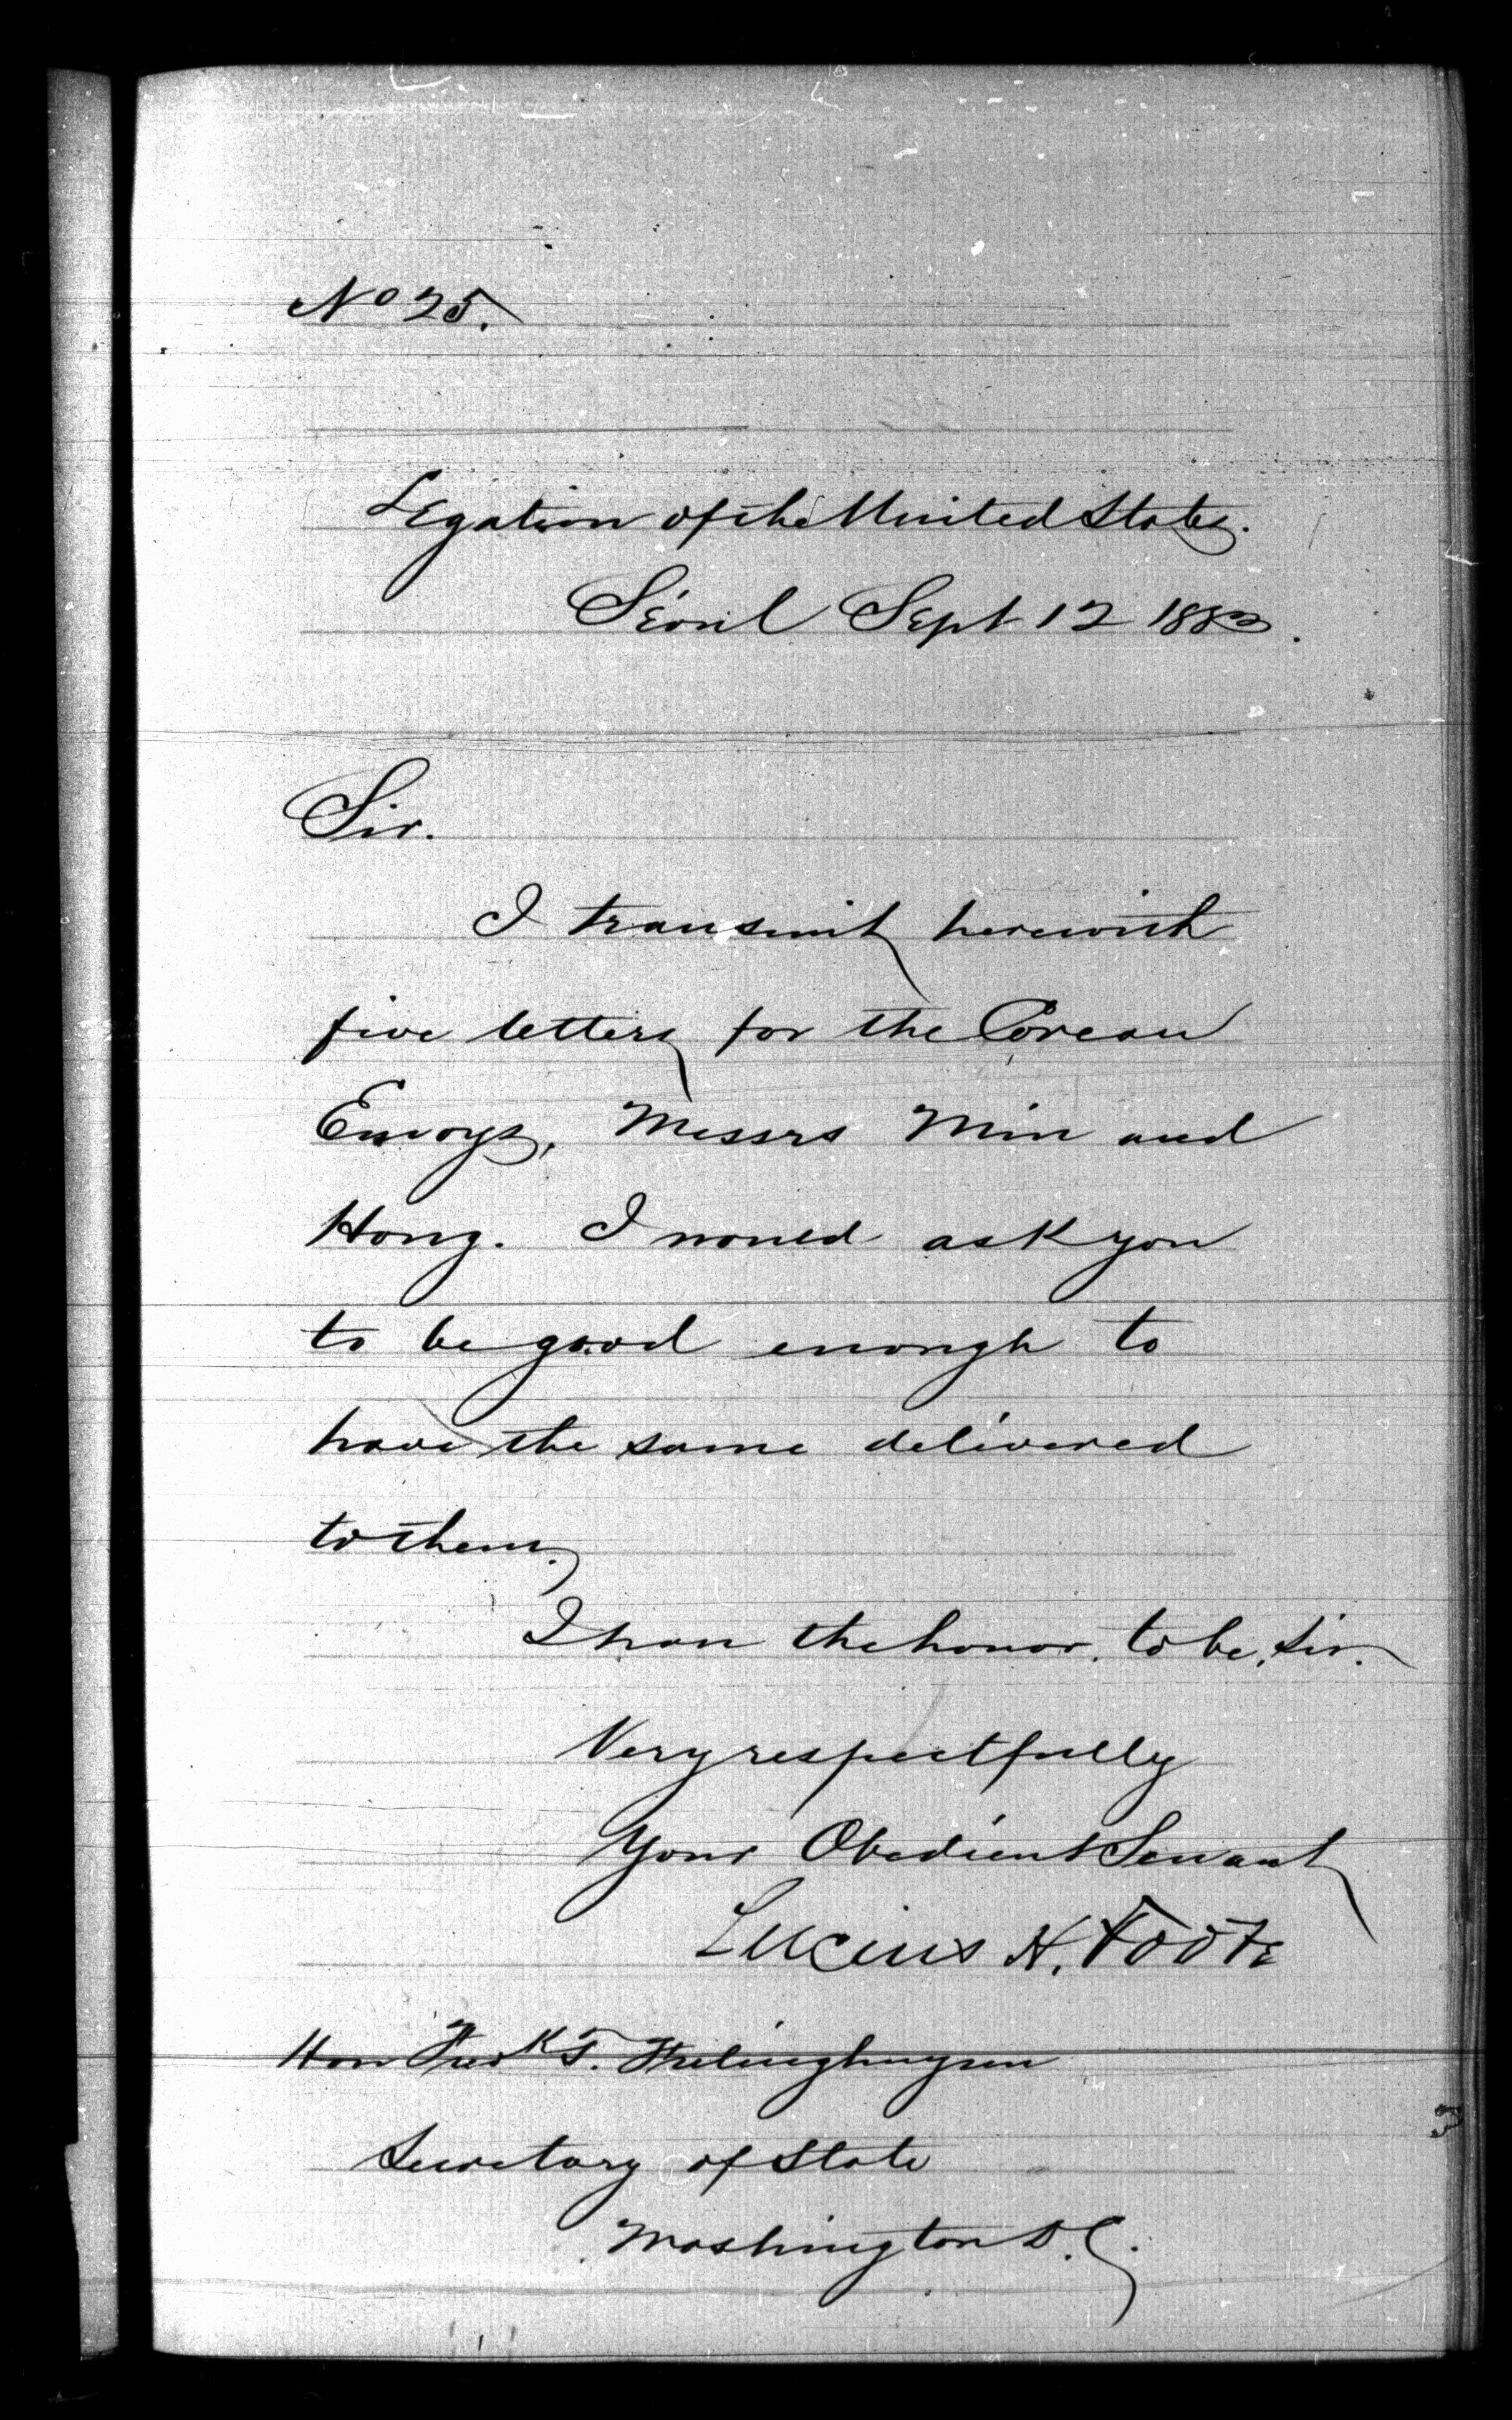 No 25.
Legation of the United States.
Séoul Sept 12 1883.
Sir.
I transmit herewith
five letters for the Corean
Envoys, Messrs Min and
Hong. I would ask you
to be good enough to
have the same delivered
to them.
I have the honor. to be, Sir.
Very respectfully
Your Obedient Servant
Lucius H. Foote
Hon Fredk T. Frelinghuysen
Secretary of State
Washington D.C.